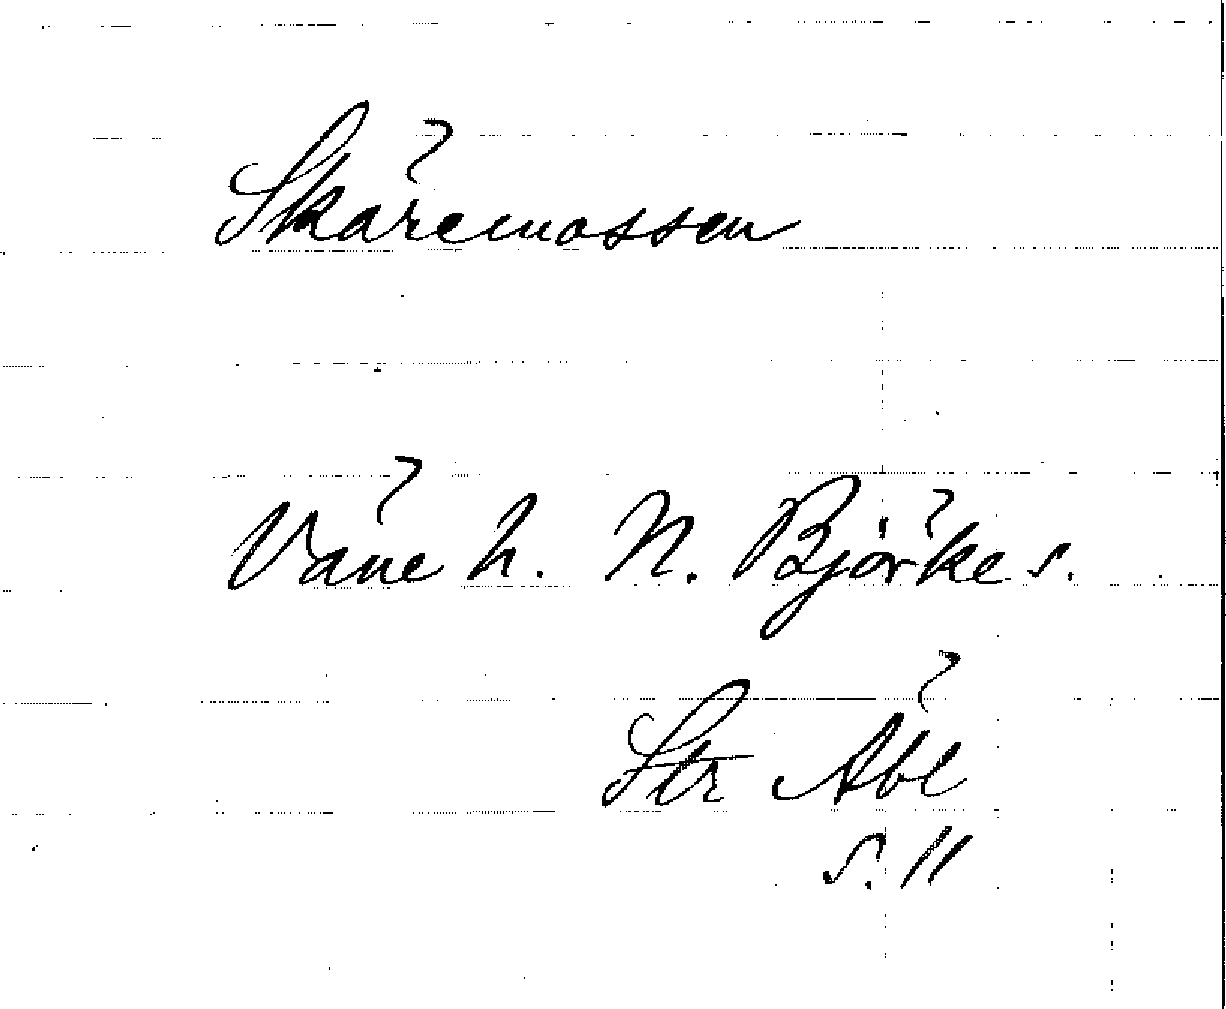 Skäremossen
Väne h. N. Björke s.
Str Äbe
s. 11